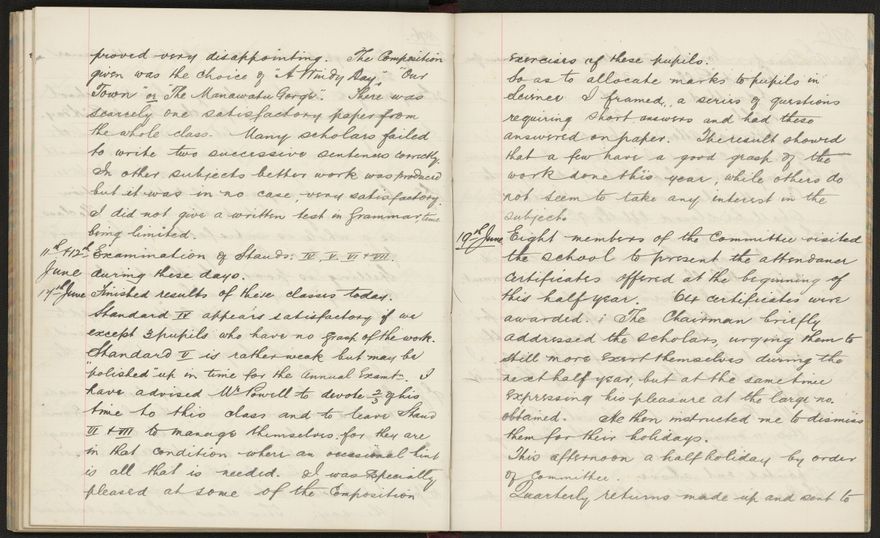 proved very disappointing. The Composition
given was the choice of "A Windy Day", "Our
Town" or "The Manawatu Gorge". There was
scarcely one satisfactory paper from
the whole class. Many scholars failed
to write two successive sentences correctly.
In other subjects better work was produced
but it was in no case, very satisfactory.
I did not give a written test in Grammar, time
being limited.
11th & 12th Examination of Stands: IV. V. VI & VII.
June during these days.
14th June Finished results of these classes today.
Standard IV appears satisfactory if we
except 3 pupils who have no grasp of the work.
Standard V is rather weak but may be
"polished" up in time for the Annual Examt. I
have advised Mr Powell to devote 2/3 of his
time to this class and to leave Stand
VI & VII to manage themselves for they are
in that condition where an occasional hint
is all that is needed. I was especially
pleased at some of the Composition
exercises of these pupils.
So as to allocate marks to pupils in
Science I framed, a series of questions
requiring short answers and had these
answered on paper. The result showed
that a few have a good grasp of the
work done this year, while others do
not seem to take any interest in the
subject.
19th June Eight members of the Committee visited
the school to present the attendance
Certificates offered at the beginning of
this half year. certificates were
awarded. The Chairman briefly
addressed the scholars, urging them to
still more exert themselves during the
next half year, but at the same time
expressing his pleasure at the large no.
obtained. He then instructed me to dismiss
them for their holidays.
This afternoon a half holiday by order
of Committee.
Quarterly returns made up and sent to